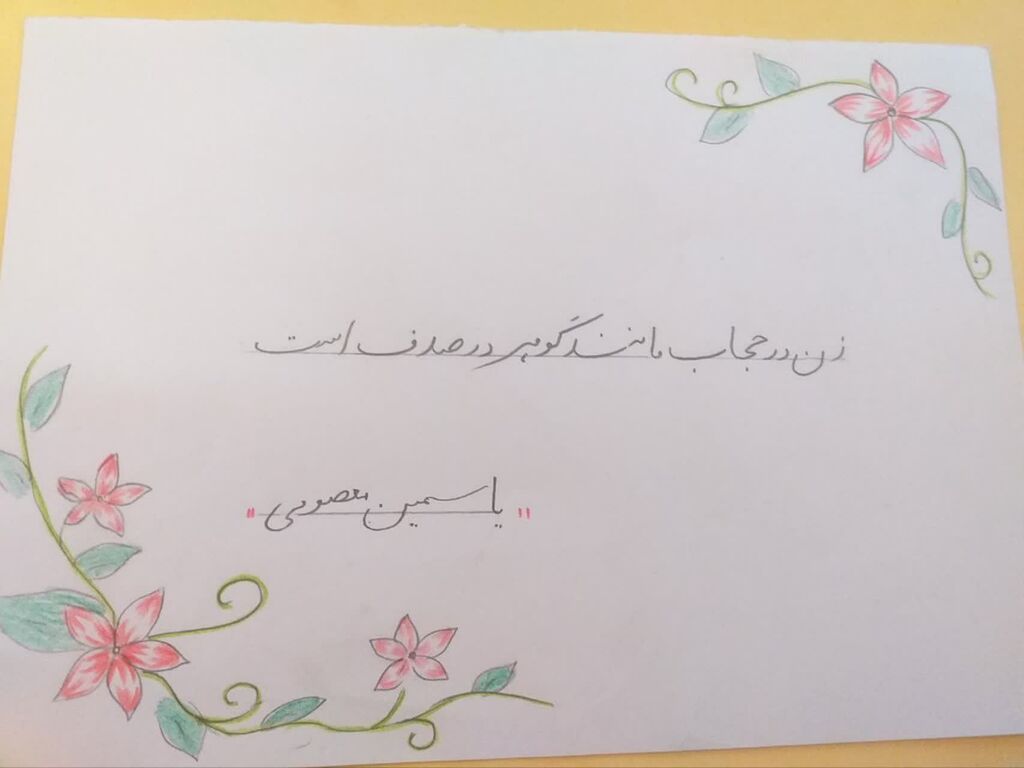 زن در حجاب مانند گوهر در صدف است
"یاسمین معصومی"